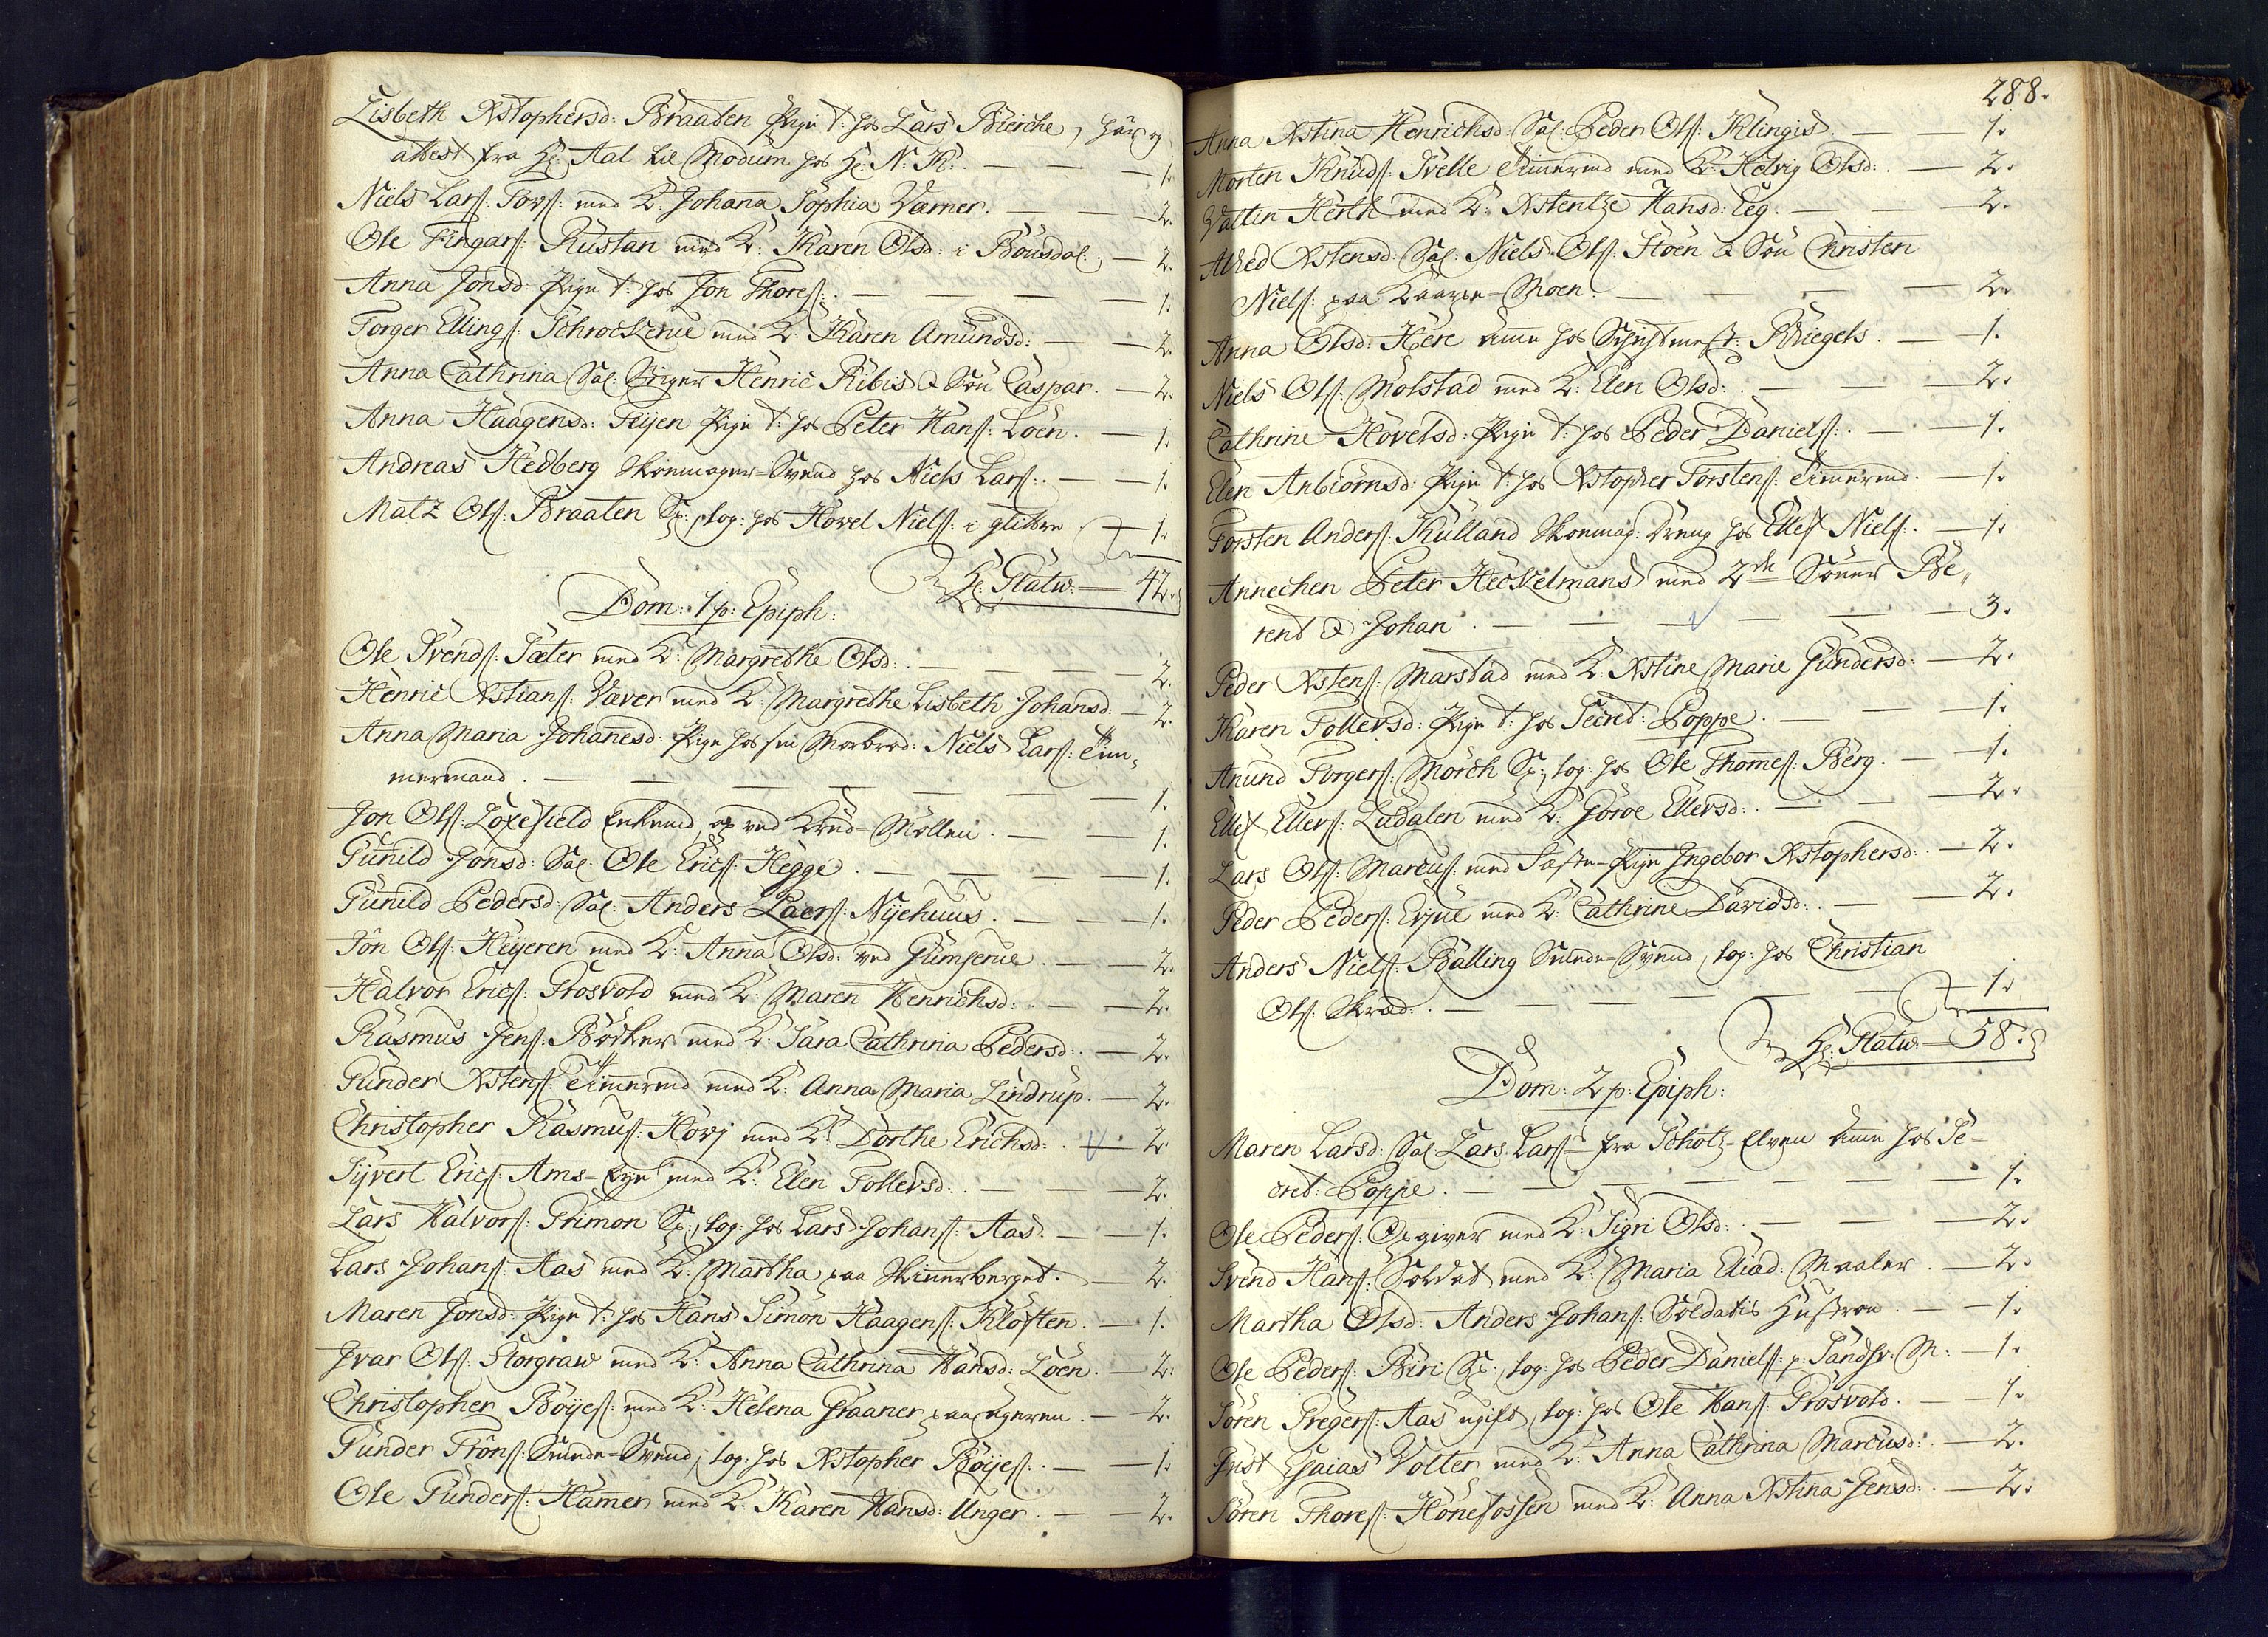 Lisbeth Xstophersd: Braaten Pige t: hos Lars Bierche, har og
attest fra Hr: Aal til Modum hos Hr: N: K: — — — 1.
Niels Lars: Tors: med K: Johana Sophia Værner. — — 2.
Ole Fingars: Rustan med K: Karen Olsd: i Bousdal. — 2.
Anna Jonsd: Pige t: hos Jon Thores: — — — 1.
Torger Ellings: Schrockerue med K: Karen Amundsd: — — 2.
Anna Cathrina Sal: Henric Ribis & Søn Caspar. — 2.
Anna Haagensd: Fijen Pige t: hos Peter Hans: Loen. — 1.
Andreas Hedberg Skomager-Svend hos Niels Lars: — — 1.
Matz Ols: Braaten Sp: log: hos Hovel Niels: i glittre — 1.
Hr: Platw. — 42.
Dom: 1 p: Epiph:
Ole Svends: Sæter med K: Margrethe Olsd: — — 2.
Henric Xstians: Væver med K: Margrethe Lisbeth Johansd: — 2.
Anna Maria Johanesd: Pige hos sin Morbrod: Niels Lars: Tim-
mermand. — — — — — — 1.
Jon Ols: Loxefield Enkemd op ved Krud-Møllen. — — 1.
Gunild Jonsd: Sal: Ole Erics: Hegge. — — — 1.
Gunild Pedersd: Sal: Anders Laers: Nijehuus. — — 1.
Jon Ols: Heijeren med K: Anna Olsd: ved Gumserue. — 2.
Halvor Erics: Grosvold med K: Maren Henrichsd: — — 2.
Rasmus Jens: Bødker med K: Sara Cathrina Pedersd: — 2.
Gunder Xstens: Timermd med K: Anna Maria Lindrup. — 2.
Christopher Rasmus: Hovj med K: Dorthe Erichsd: — 2.
Sijvert Erics: Ams-Eye med K: Elen Tollevsd: — — 2.
Lars Halvors: Grimon Sp:, log: hos Lars Johans: Aas. — 1.
Lars Johans: Aas med K: Martha paa Skinnerberget. — 2.
Maren Jonsd: Pige t: hos Hans Simon Haagens: Kløften. — 1.
Jvar Ols: Storgraw med K: Anna Cathrina Hansd: Loen. — 2.
Christopher Böijes: med K: Helena Graaner paa ageren. — 2.
Gunder Trons: Smede-Svend, log: hos Xstopher Böijes: — 1.
Ole Gunders: Hamer med K: Karen Hansd: Unger. — — 2.
288.
Anna Xstina Henrichsd: Sal: Peder Ols: Klingis. — 1.
Morten Knuds: Tvelle Timermd med K: Helvig Olsd: — 2.
Valtin Herth med K: Xstentze Hansd: Eeg. — — 2.
Alhed Xstensd: Sal: Niels Ols: Stoen & Søn Christen
Niels: paa Kaarse-Moen. — — — — 2.
Anna Olsd: Here Amme hos Schichtmest: Kriegels. — 1.
Niels Ols: Molstad med K: Elen Olsd: — — 2.
Cathrine Hovelsd: Pige t: hos Peder Daniels: — 1.
Elen Anbiörnsd: Pige t: hos Xstopher Torstens: Timermd. — 1.
Torsten Anders: Kulland Skomag: Dreng hos Ellef Niels: — 1.
Annechen Peter Heckelmans med 2de Sönner Be-
rent & Johan. — — — — 3.
Peder Xstens: Marstad med K: Xstine Marie Gundersd: — 2.
Karen Tollevsd: Pige t: hos Secret: Poppe. — — 1.
Anund Torgers: Mörch Sp:, log: hos Ole Thomes: Berg. — 1.
Ellef Ellefs: Ludalen med K: Göroe Ellevsd: — — 2.
Lars Ols: Marcus: med Fæste-Pige Jngebor Xstophersd: — 2.
Peder Peders: Evjue med K: Cathrine Davidsd: — — 2.
Anders Niels: Balling Smede-Svend, log: hos Christian
Ols: Skræd: — — — — — 1.
Hr: Platw. — 58.
Dom: 2 p: Epiph:
Maren Larsd: Sal: Lars Lars: fra Schotz-Elven Amme hos Se-
cret: Poppe. — — — — — 1.
Ole Peders: Opgiver med K: Sigri Olsd: — — — 2.
Svend Hans: Soldat med K: Maria Eliæd: Maaler. — 2.
Martha Olsd: Anders Johans: Soldatis Hustroe. — 1.
Ole Peders: Biri Sp:, log: hos Peder Daniels: p: Sandsv: M: — 1.
Sören Gregers: Aas ugift, log: hos Ole Hans: Grosvold. — 1.
Just Esaias Volter med K: Anna Cathrina Marcusd: — 2.
Sören Thores: Hönefossen med K: Anna Xstina Jensd: — 2.